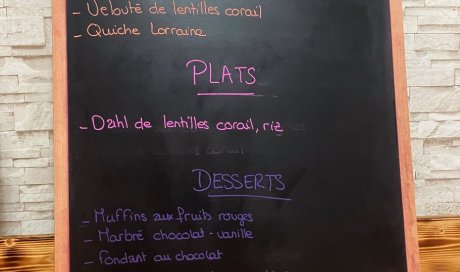 - Velouté de lentilles corail
- Quiche Lorraine
PLATS
- Dahl de lentilles corail, riz
DESSERTS
- Muffins aux fruits rouges
- Marbré chocolat-vanille
- Fondant au chocolat